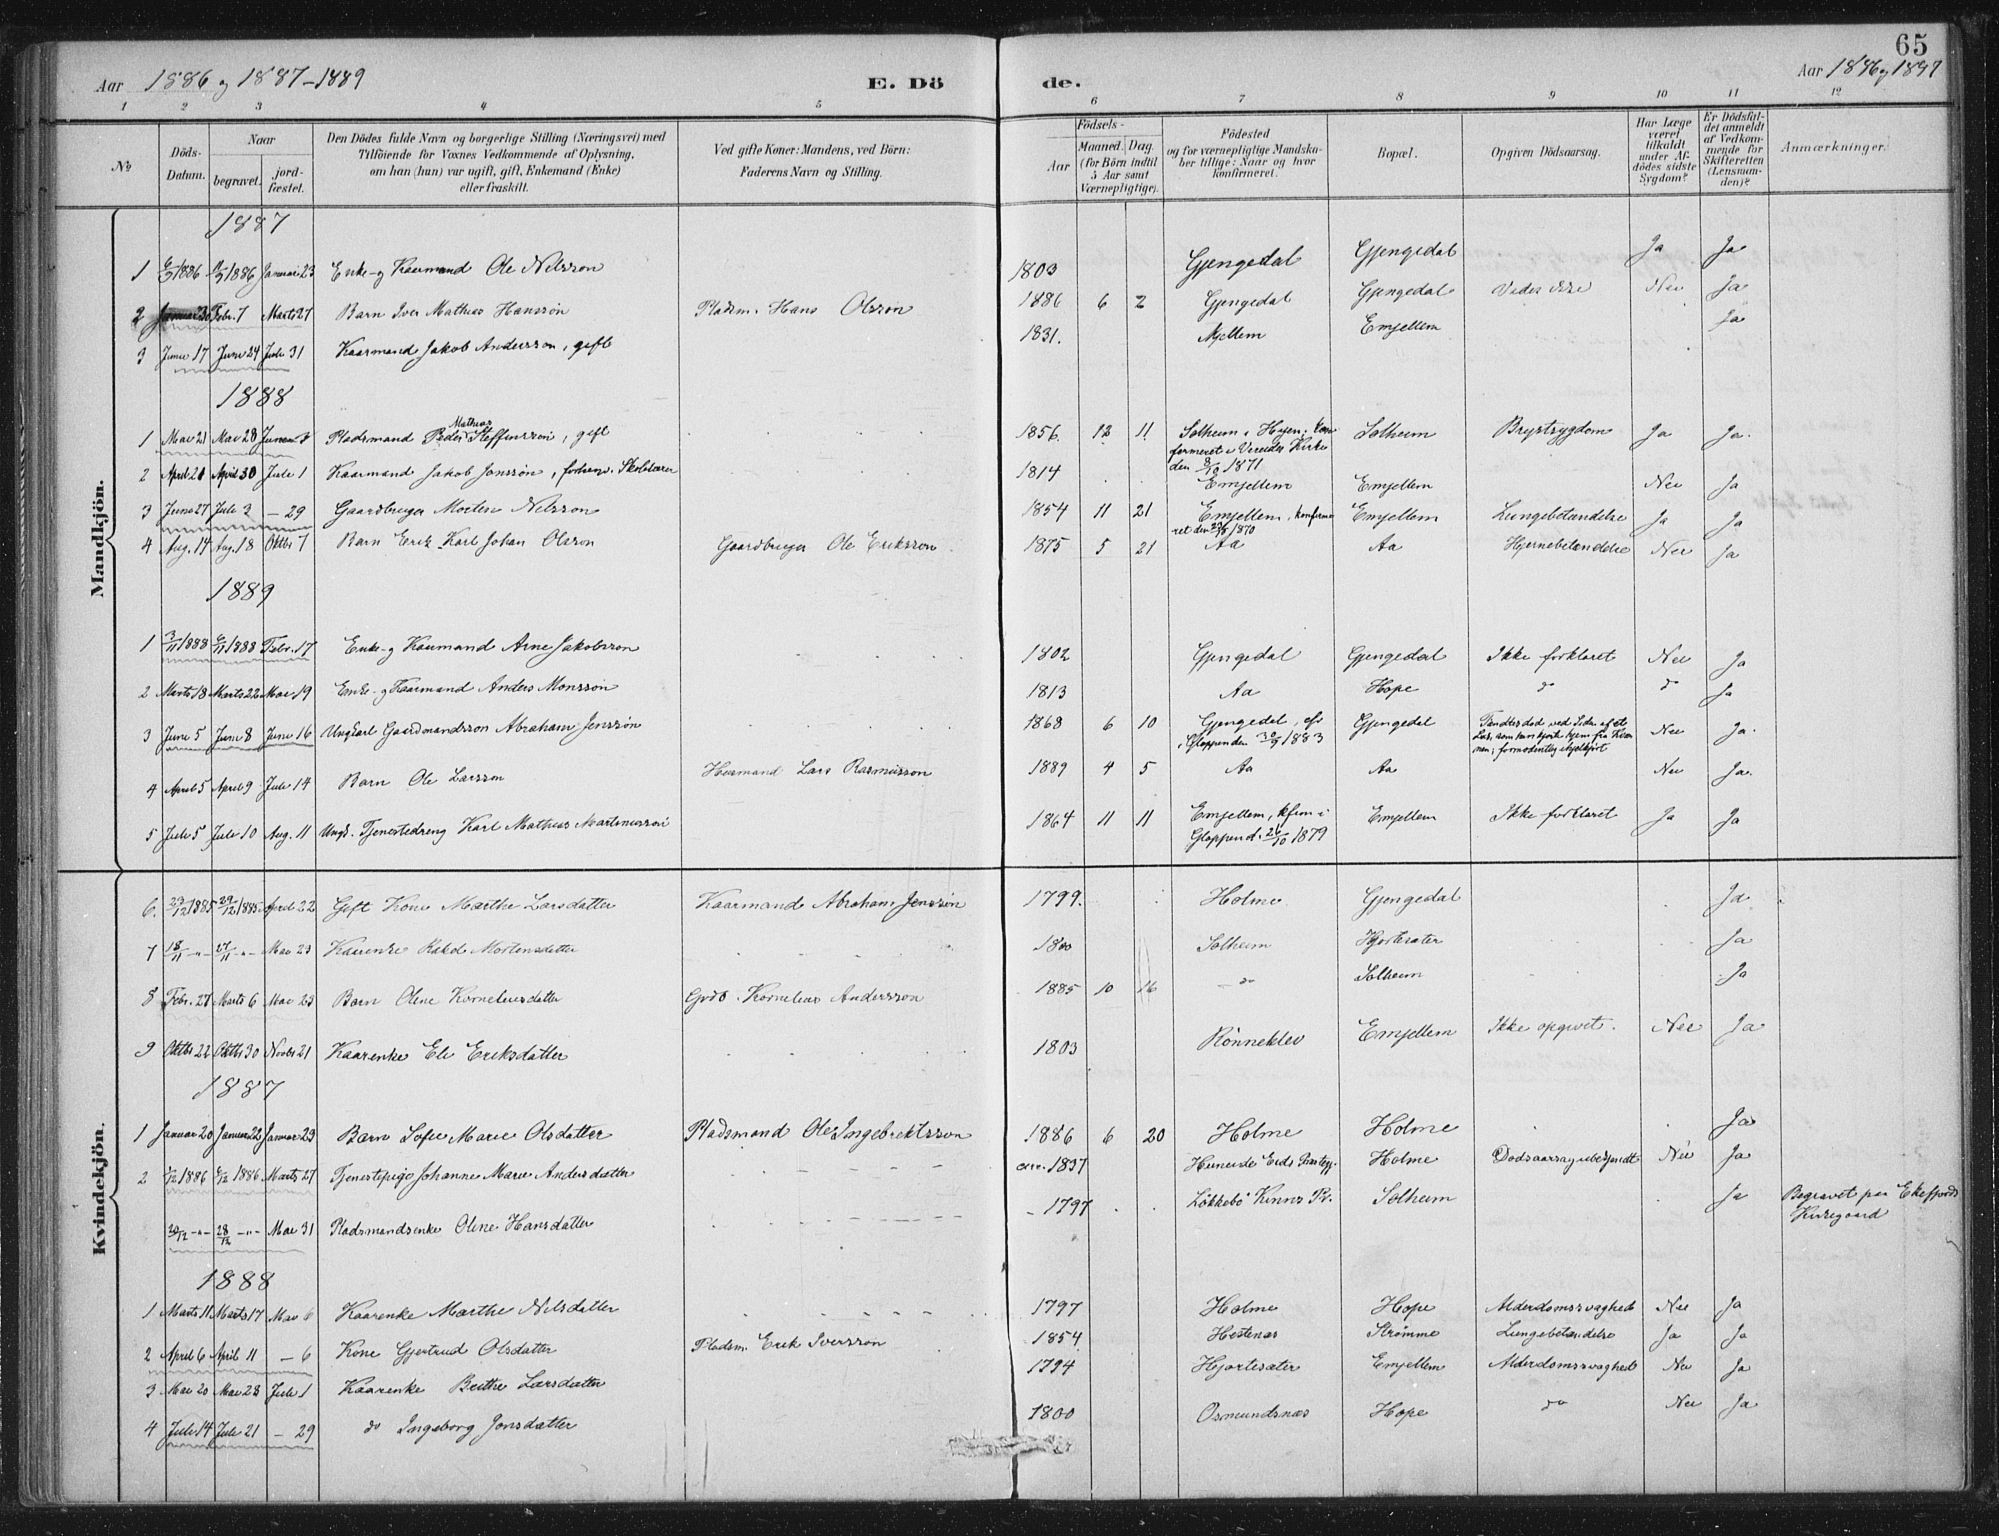 65
Aar 1886 og 1887-1889 E. Dö de. Aar 1886 og 1887
1 2 3 4 5 6 7 8 9 10 11 12
No
Döds-Datum.
Naar begravet. jordfæstet.
Den Dödes fulde Navn og borgerlige Stilling (Næringsvei) med Tilföiende for Voxnes Vedkommende af Oplysning, om han (hun) var ugift, gift, Enkemand (Enke) eller fraskilt.
Ved gifte Koner: Mandens, ved Börn: Faderens Navn og Stilling.
Födsels- Aar Maaned. Dag. (for Börn indtil 5 Aar samt Værnepligtige).
Födested og for værnepligtige Mandskaber tillige: Naar og hvor konfirmeret.
Bopæl.
Opgiven Dödsaarsag.
Har Læge været tilkaldt under Afdödes sidste Sygdom?
Er Dödsfaldet anmeldt af Vedkommende for Skifteretten (Lensmanden)?
Anmærkninger.
Mandkjön.
1887
1 6/9 1886 1886 Januar 23 Enke- og Kaarmand Ole Nilssøn 1803 Gjengedal Gjengedal Ja Ja
2 Januar 30 Febr. 7 Marts 27 Barn Iver Mathias Hanssøn Pladsm. Hans Olssøn 1886 6 2 Gjengedal Gjengedal Vides ikke Nei Ja
3 Juni 17 Juni 24 Juli 31 Kaarmand Jakob Anderssøn, gift 1831. Mjellem Emjellem Ja
1888
1 Mai 21 Mai 28 Juni Pladsmand Peder Mathias Steffenssøn, gift 1856. 12 11 Solheim i Hyen, konfirmeret i Vereides Kirke den 8/10 1871 Solheim Brystsygdom Ja Ja.
2 April 21 April 30 Juli 1 Kaarmand Jakob Jonssøn, forhenv. Skolelærer 1814 Emjellem Emjellem Nei Ja
3 Juni 27 Juli 2 - 29 Gaardbruger Morten Nilssøn 1854 11 21 Emjellem, konfirmeret den 1870 Emjellem Lungebetændelse Ja Ja
4 Aug. 14 Aug. 18 Oktbr 7 Barn Erik Karl Johan Olssøn Gaardbruger Ole Erikssøn 1875 5 21 Aa Aa Hjernebetændelse Nei Ja
1889
1 3/11 1888 6/11 1888 Febr. 17 Enke- og Kaarmand Arne Jakobssøn 1802 Gjengedal Gjengedal Ikke forklaret Nei Ja
2 Marts 18 Marts 22 Mai 19 Enke- og Kaarmand Anders Monssøn 1813 Aa Hope do do Ja
3 Juni 5 Juni 8 Juni 16 Ungkarl Gaardmandssøn Abraham Jenssøn 1868 6 10 Gjengedal, cfr i Gloppen den 30/9 1883 Gjengedal Fandtes død ved Siden af et Læs, som han kjørte hjem fra Kvernen; formodentlig ihjelkjørt Nei Ja.
4 April 5 April 9 Juli 14 Barn Ole Larssøn Husmand Lars Rasmussøn 1889 4 5 Aa Aa Nei Ja.
5 Juli 5 Juli 10 Aug. 11 Ungk. Tjenestedreng Karl Mathias Martinussøn 1864 11 11 Emjellem, kfirm i Gloppen d. 26/10 1879 Emjellem Ikke forklaret Ja Ja
Kvindekjön.
6. 23/12 1885 29/12 1885 April 22 Gift Kone Marthe Larsdatter Kaarmand Abraham Jenssøn 1799. Holme Gjengedal Ja
7 18/11 -"- 27/11 -"- Mai 23 Kaarenke Rakel Mortensdatter 1800 Solheim Hjortesæter Ja
8 Febr. 27 Marts 6 Mai 23 Barn Oline Korneliusdatter Grdb. Kornelius Anderssøn 1885 10 16 do Solheim Ja
9 Oktbr 22 Oktbr 30 Novbr 21 Kaarenke Eli Eriksdatter 1803 Rønneklev Emjellem Ikke opgivet. Nei Ja
1887
1 Januar 20 Januar 22 Januar 23 Barn Sofie Marie Olsdatter Pladsmand Ole Ingebrektssøn 1886 6 20 Holme Holme Ja
2 1/12 1886 6/12 1886 Marts 27 Tjenestepige Johanne Marie Andersdatter circ. 1837 Eids Præstegj. Holme Dødsaarsag ubekjendt Nei Ja
20/12 -"- 28/12 -"- Mai 31 Pladsmandsenke Oline Hansdatter 1797 Løkkebø Kinns Pr. Solheim Ja Begravet paa Eikefjords Kirkegaard
1888
1 Marts 11 Marts 17 Mai 6 Kaarenke Marthe Nilsdatter 1797 Holme Hope Alderdomssvaghed Nei Ja
2 April 6 April 11 - 6 Kone Gjertrud Olsdatter Pladsm. Erik Iverssøn 1854 Hestenæs Strømme Lungebetændelse Ja Ja
3 Mai 20 Mai 28 Juli 1 Kaarenke Berthe Larsdatter 1794 Hjortesæter Emjellem Alderdomssvaghed Nei Ja
4 Juli 14 Juli 21 - 29 do Ingeborg Jonsdatter 1800 Osmundsnæs Hope do Nei Ja